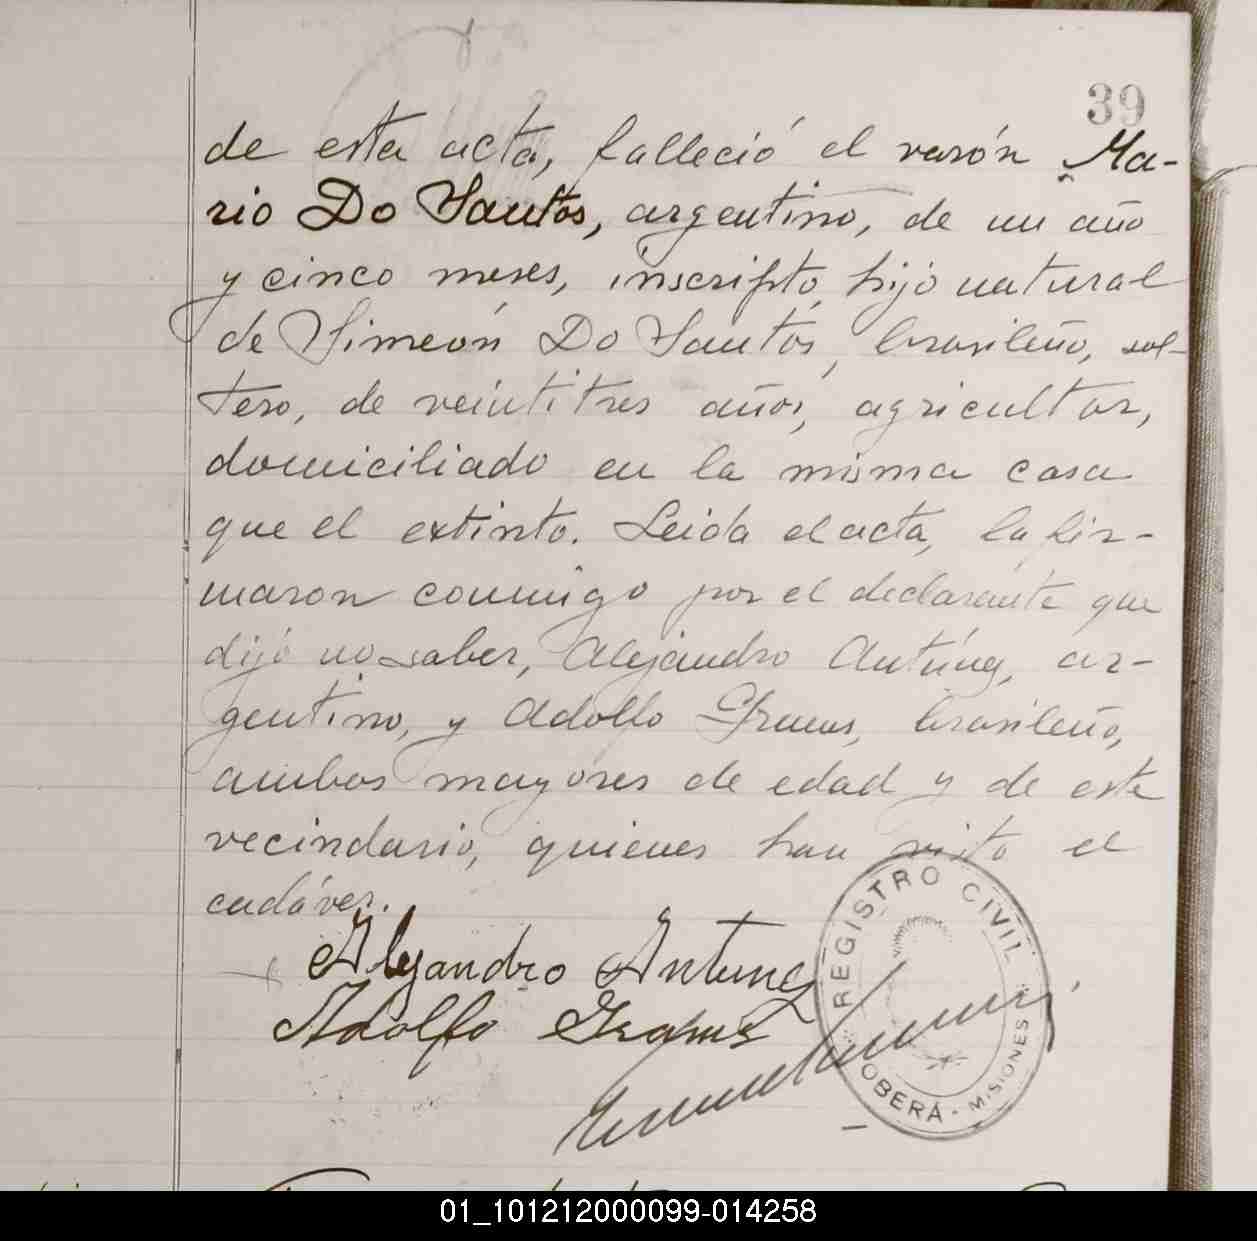 39
de esta acta, falleció el varón Ma-
rio Do Santos, argentino, de un año
y cinco meses, inscripto, hijo natural
de Simeón Do Santos, brasileño, sol-
tero, de veintitres años, agricultor,
domiciliado en la misma casa
que el extinto. Leida el acta, la fir-
maron conmigo por el declarante que
dijo no saber, Alejandro Antúnez, ar-
gentino, y Adolfo brasileño,
ambos mayores de edad y de este
vecindario, quienes han visto el
cadáver.
Alejandro Antunez
Adolfo
REGISTRO CIVIL
OBERÁ - MISIONES
01_101212000099-014258